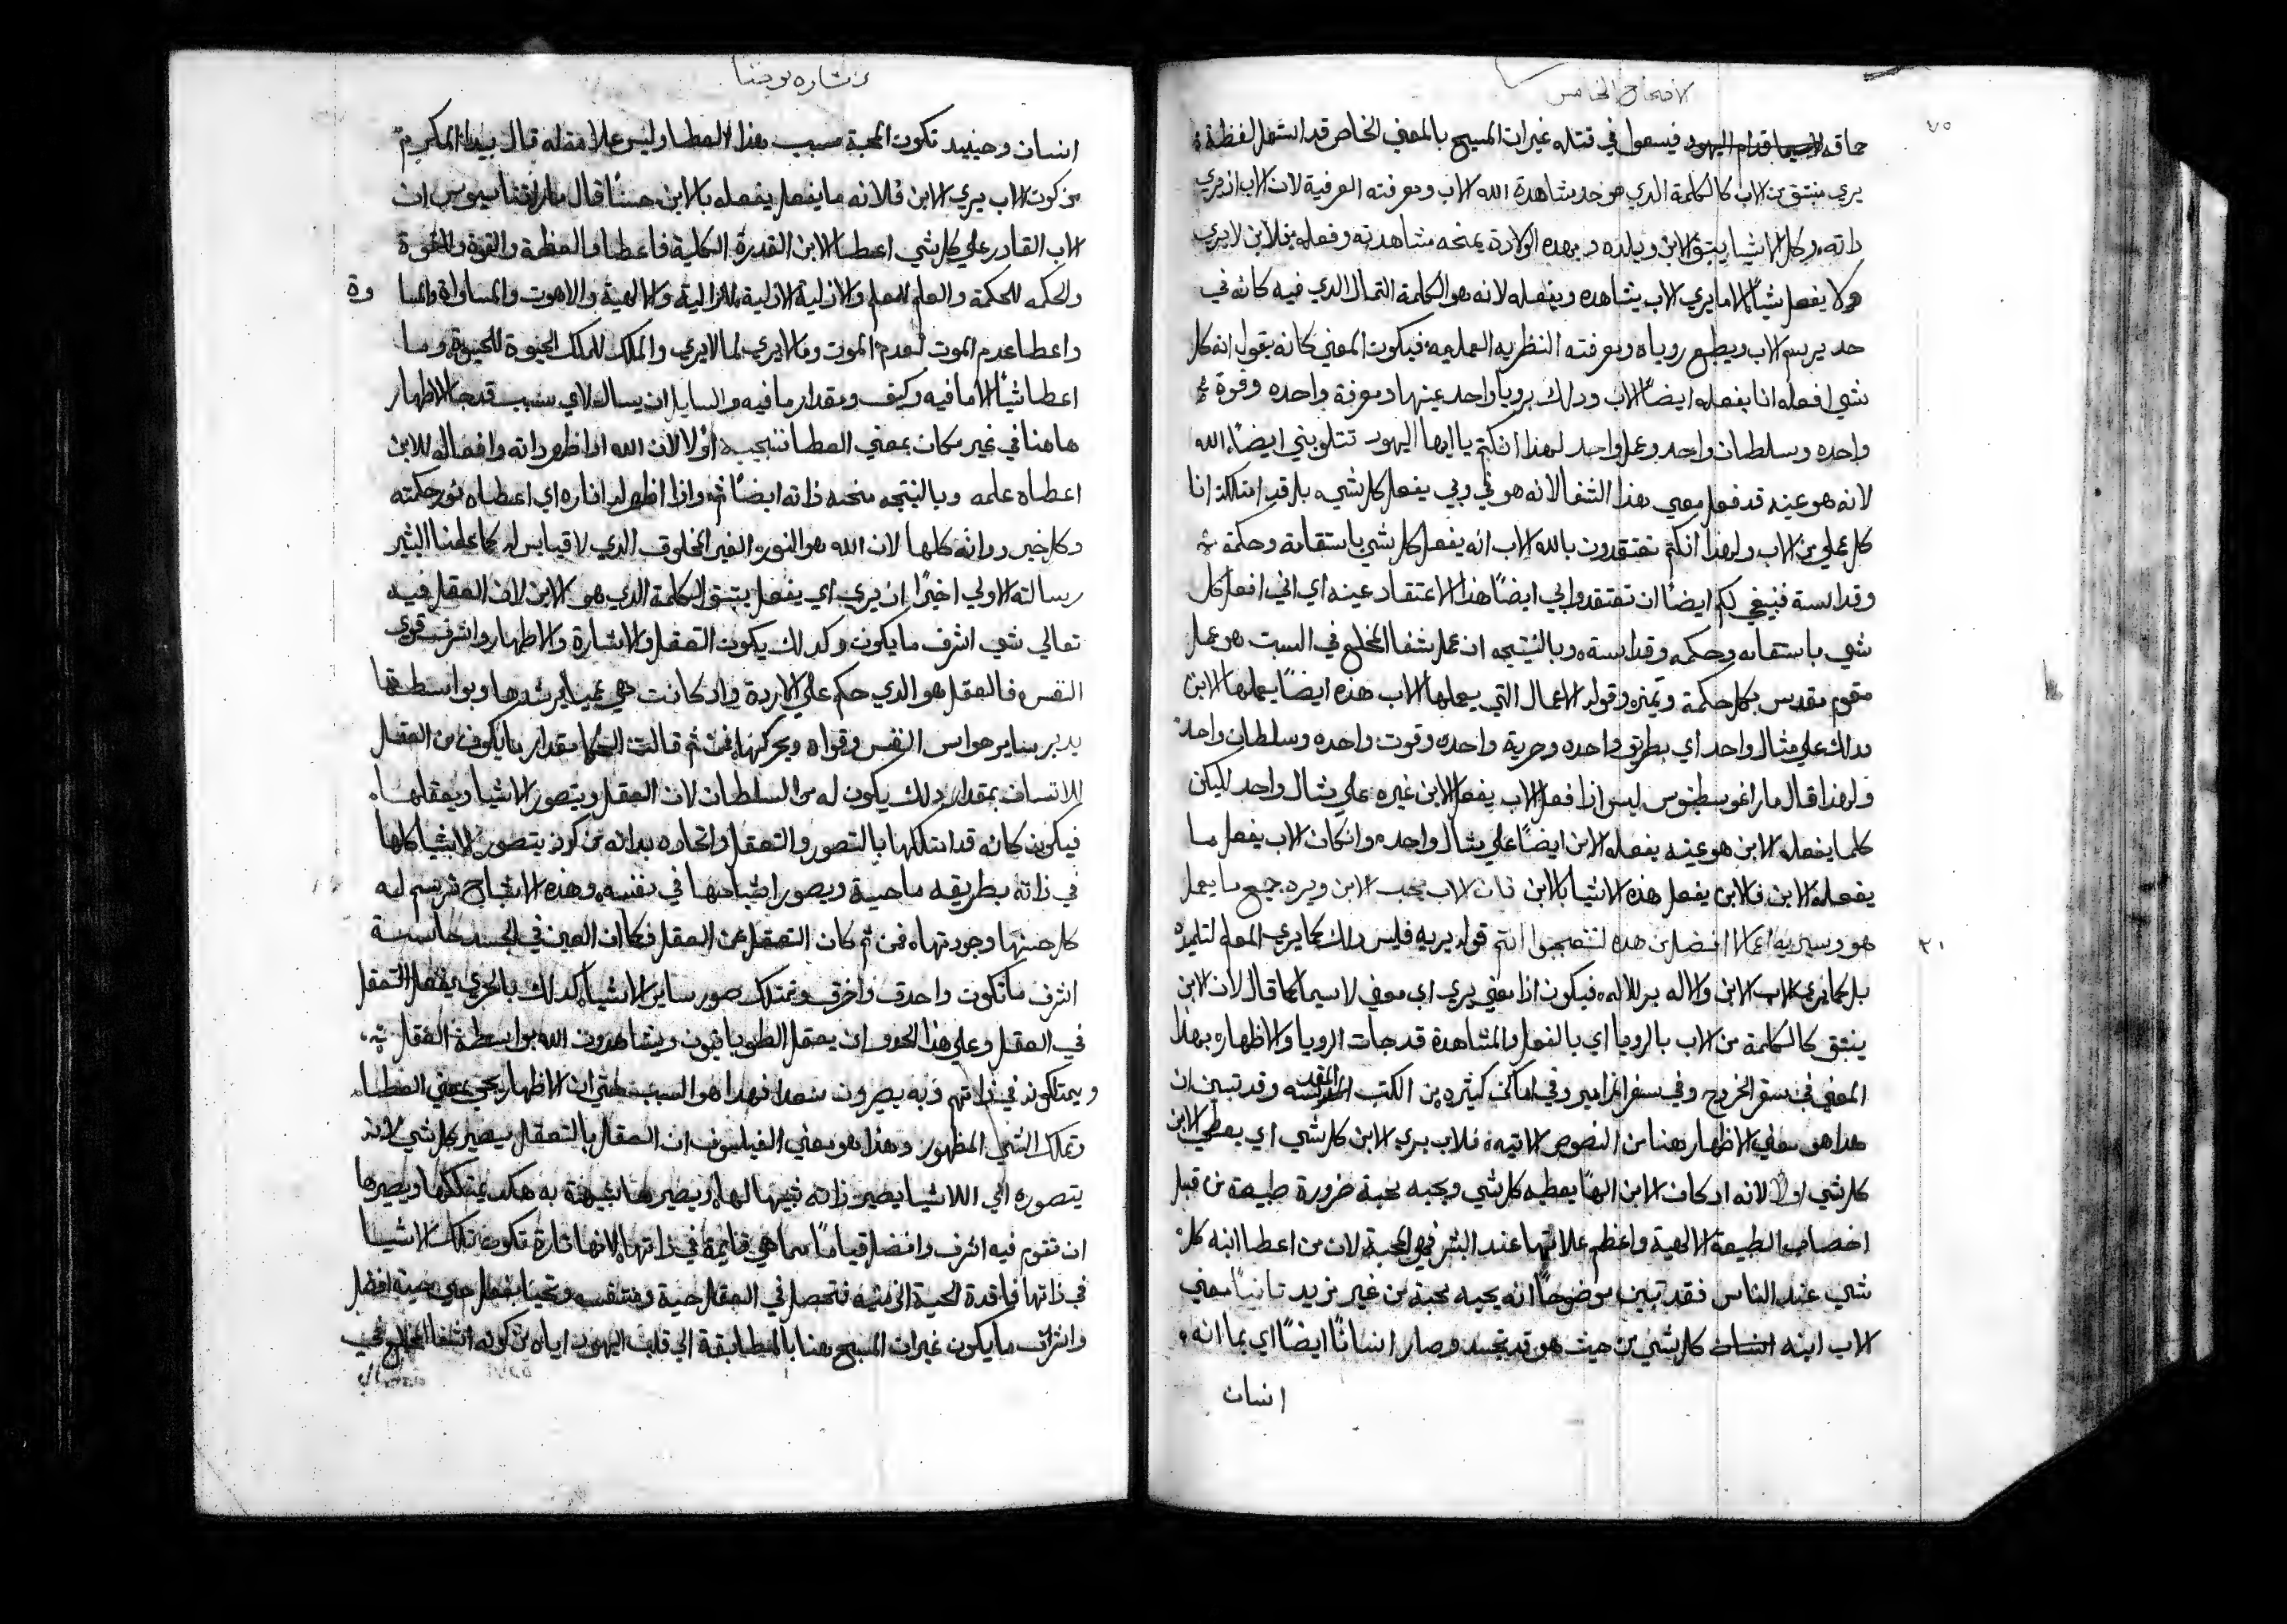 الاصحاح الخامس
٧٥
حاقه فيسعوا في قتله غير ان المسيح بالمعني الخاص قد استعمل لفظة
يري منبثق من الاب كالكلمة الدي هو حد مشاهدة الله الاب ومعرفته العرفية لان الاب اذ يري
داته وكل الاشيا يبثق الابن ويلده وبهده الولادة يمنحه مشاهدته وفعله فالابن لا يري
ولا يفعل شياً الا ما يري الاب يشاهده ويفعله لانه هو الكلمة التمثال الدي فيه كانه في
حد يرسم الاب ويطبع روياه ومعرفته النظريه العمليه فيكون المعني كانه يقول انه كل
شي افعله انا يفعله ايضاً الاب ودلك برويا واحد عينها ومعرفة واحده وقوة
واحده وسلطان واحد وعمل واحد لهدا انكم يا ايها اليهود تتلوبني ايضاً الله
لانه هو عينه قد فعل معي هذا الشفا لانه هو في وبي يفعل كل شي بل قد امتلكت انا
كل عملي من الاب ولهذا انكم تعتقدون بالله الاب انه يفعل كل شي باستقامة وحكمة
وقداسة فينبغي لكم ايضاً ان تعتقدوا بي ايضاً هذا الاعتقاد عينه اي اني افعل كل
شي باستقامه وحكمه وقداسة وبالنتيجه ان عمل شفا المخلع في السبت هو عمل
مقوم مقدس بكل حكمة وتميز وقوله الاعمال التي يعملها الاب هذه ايضاً يعملها الابن
ودلك علي مثال واحد اي بطريق واحده وحرية واحده وقوت واحده وسلطان واحد
ولهذا قال مار اغوسطينوس ليس اذا فعل الاب يفعل الابن غيره علي مثال واحد لكن
كلما يفعله الابن هو عينه يفعله الابن ايضاً علي مثال واحد وان كان الاب يفعل ما
يفعله الابن فالابن يفعل هذه الاشيا بالابن فان الاب يحب الابن ويره جميع ما يعمل
٢٠
هو وسيريه اعمالا افضل من هده لتتعجبوا انتم قوله يريه فليس دلك كما يري المعلم لتلميذه
بل كما يري الاب الابن والاله للاله فيكون اذا معني يري اي لا سيما كما قال لان الابن
ينبثق كالكلمة من الاب بالرويا اي بالفعل والمشاهدة قد جات الرويا والاظهار بهذا
المعني في سفر الخروج وفي سفر المزامير وفي اماكن كثيره من الكتب المقدسه وقد تبين ان
هدا هو معني الاظهار هنا من النصوص الاتيه فالاب يري الابن كل شي اي يعطي الابن
كل شي اولاً لانه اد كان الابن الهاً يعطيه كل شي ويحبه محبة ضرورة طبيعة من قبل
اختصاص الطبيعة الالهية واعظم علاماتها عند البشر هي المحبة لان من اعطا ابنه كل
شي عند الناس فقد تبين موضوحاً انه يحبه محبة من غير مزيد تانياً معني
الاب ابنه كل شي من حيث هو قد تجسد وصار انسانا ايضاً اي بما انه
انسان
بشارة يوحنا
انسان وحينيد تكون المحبة سبب هذا العطا وليس علامة له قال بيدا المكرم
من كون الاب يري الابن فلانه ما يفعل يفعله بالابن حسناً قال مار اتناسيوس ان
الاب القادر علي كل شي اعطا الابن القدرة الكلية فاعطا والعظمة والقوة والقوة
والحكمه للحكمة والعلم للعلم والازلية الازلية للازلية والالهية واللاهوت والمساواة والمسا وة
واعطا عدم الموت لعدم الموت وما لا يري لما لا يري والملك للملك الحيوة للحيوة وما
اعطا شياً الا ما فيه وكيف ومقدار ما فيه والسايل ان يسال لاي سبب قد جا الاظهار
هاهنا في غير مكان بمعني العطا فنجيب اولا لان الله اذا ظهر داته وافعاله للابن
اعطاه علمه وبالنتيجه منحه ذاته ايضاً ثم واذا اظهر له اناره اي اعطاه نور حكمته
وكل خير وداته كلها لان الله هو النور الغير المخلوق الدي لا قياس له كما علمنا البشير
رسالته الاولي اخيراً ان يري اي يفعل يبثق الكلمة الدي هو الابن لان العقل فيه
تعالي شي اشرف ما يكون وكدلك يكون التعقل والاشارة والاظهار واشرف قوي
النفس فالعقل هو الدي حكم علي الارادة واد كانت هي عميا يرشدها وبواسطتها
يدبر ساير حواس النفس وقواه ويحركها فمن ثم قالت الحكما مقدار ما يكون من العقل
للانسان بمقدار دلك يكون له من السلطان لان العقل ويتصور الاشيا ويعقلها
فيكون كانه قد امتلكها بالتصور والتعقل واتحاده بداته من كونه يتصور الاشيا كلها
في ذاته بطريقه ما حية ويصور اشباحها في نفسه وهذه الاشباح ترسم له
كل حسنها وجودتها فمن ثم كان التعقل من العقل فكما ان العين في الجسد حاسة
اشرف ما تكون واحدق واخرق وتمتلك صور ساير الاشيا كدلك بالحري يفعل التعقل
في العقل وعلي هذا الحدو ان يعقل الطوباويون ويشاهدون الله بواسطة العقل
ويمتلكونه في ذاتهم وبه يصيرون سعدا فهدا هو السبب حتي ان الاظهار يجي بمعني العطا
وتملك الشي المظهور وهذا هو معني الفيلسوف ان العقل بالتعقل يصير كل شي لانه
يتصوره اي اللاشيا يصير ذاته شبيها لها ويصيرها شبيهة به هكدا يمتلكها ويصيرها
ان تقوم فيه اشرف وافضل قياماً مما هي قايمة في ذاتها لانها تارة تكون تلك الاشيا
في ذاتها فاقدة الحية الزمنيه فتحصل في العقل حية ومتنفسه وتحيا بفعل حي حية افضل
واشرف ما يكون غير ان المسيح هنا بالمطابقة الي قلب اليهود اياه من كونه اشفا المخلع في